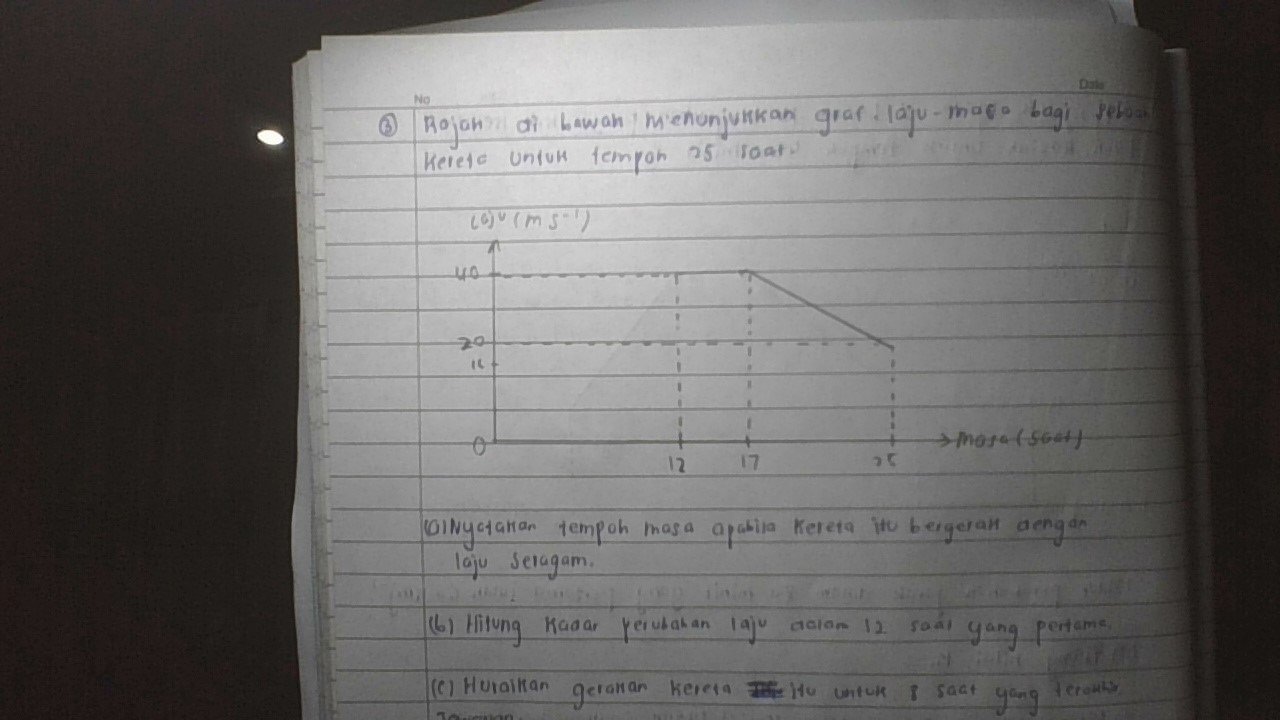 No
Date
③ Rajah di bawah menunjukkan graf laju-masa bagi sebuah
kereta untuk tempoh 25 saat.
laju (m s⁻¹)
40
20
0
12 17 25
masa (saat)
(a) Nyatakan tempoh masa apabila kereta itu bergerak dengan
laju seragam.
(b) Hitung kadar perubahan laju dalam 12 saat yang pertama.
(c) Huraikan gerakan kereta itu untuk 8 saat yang terakhir.
Jawapan